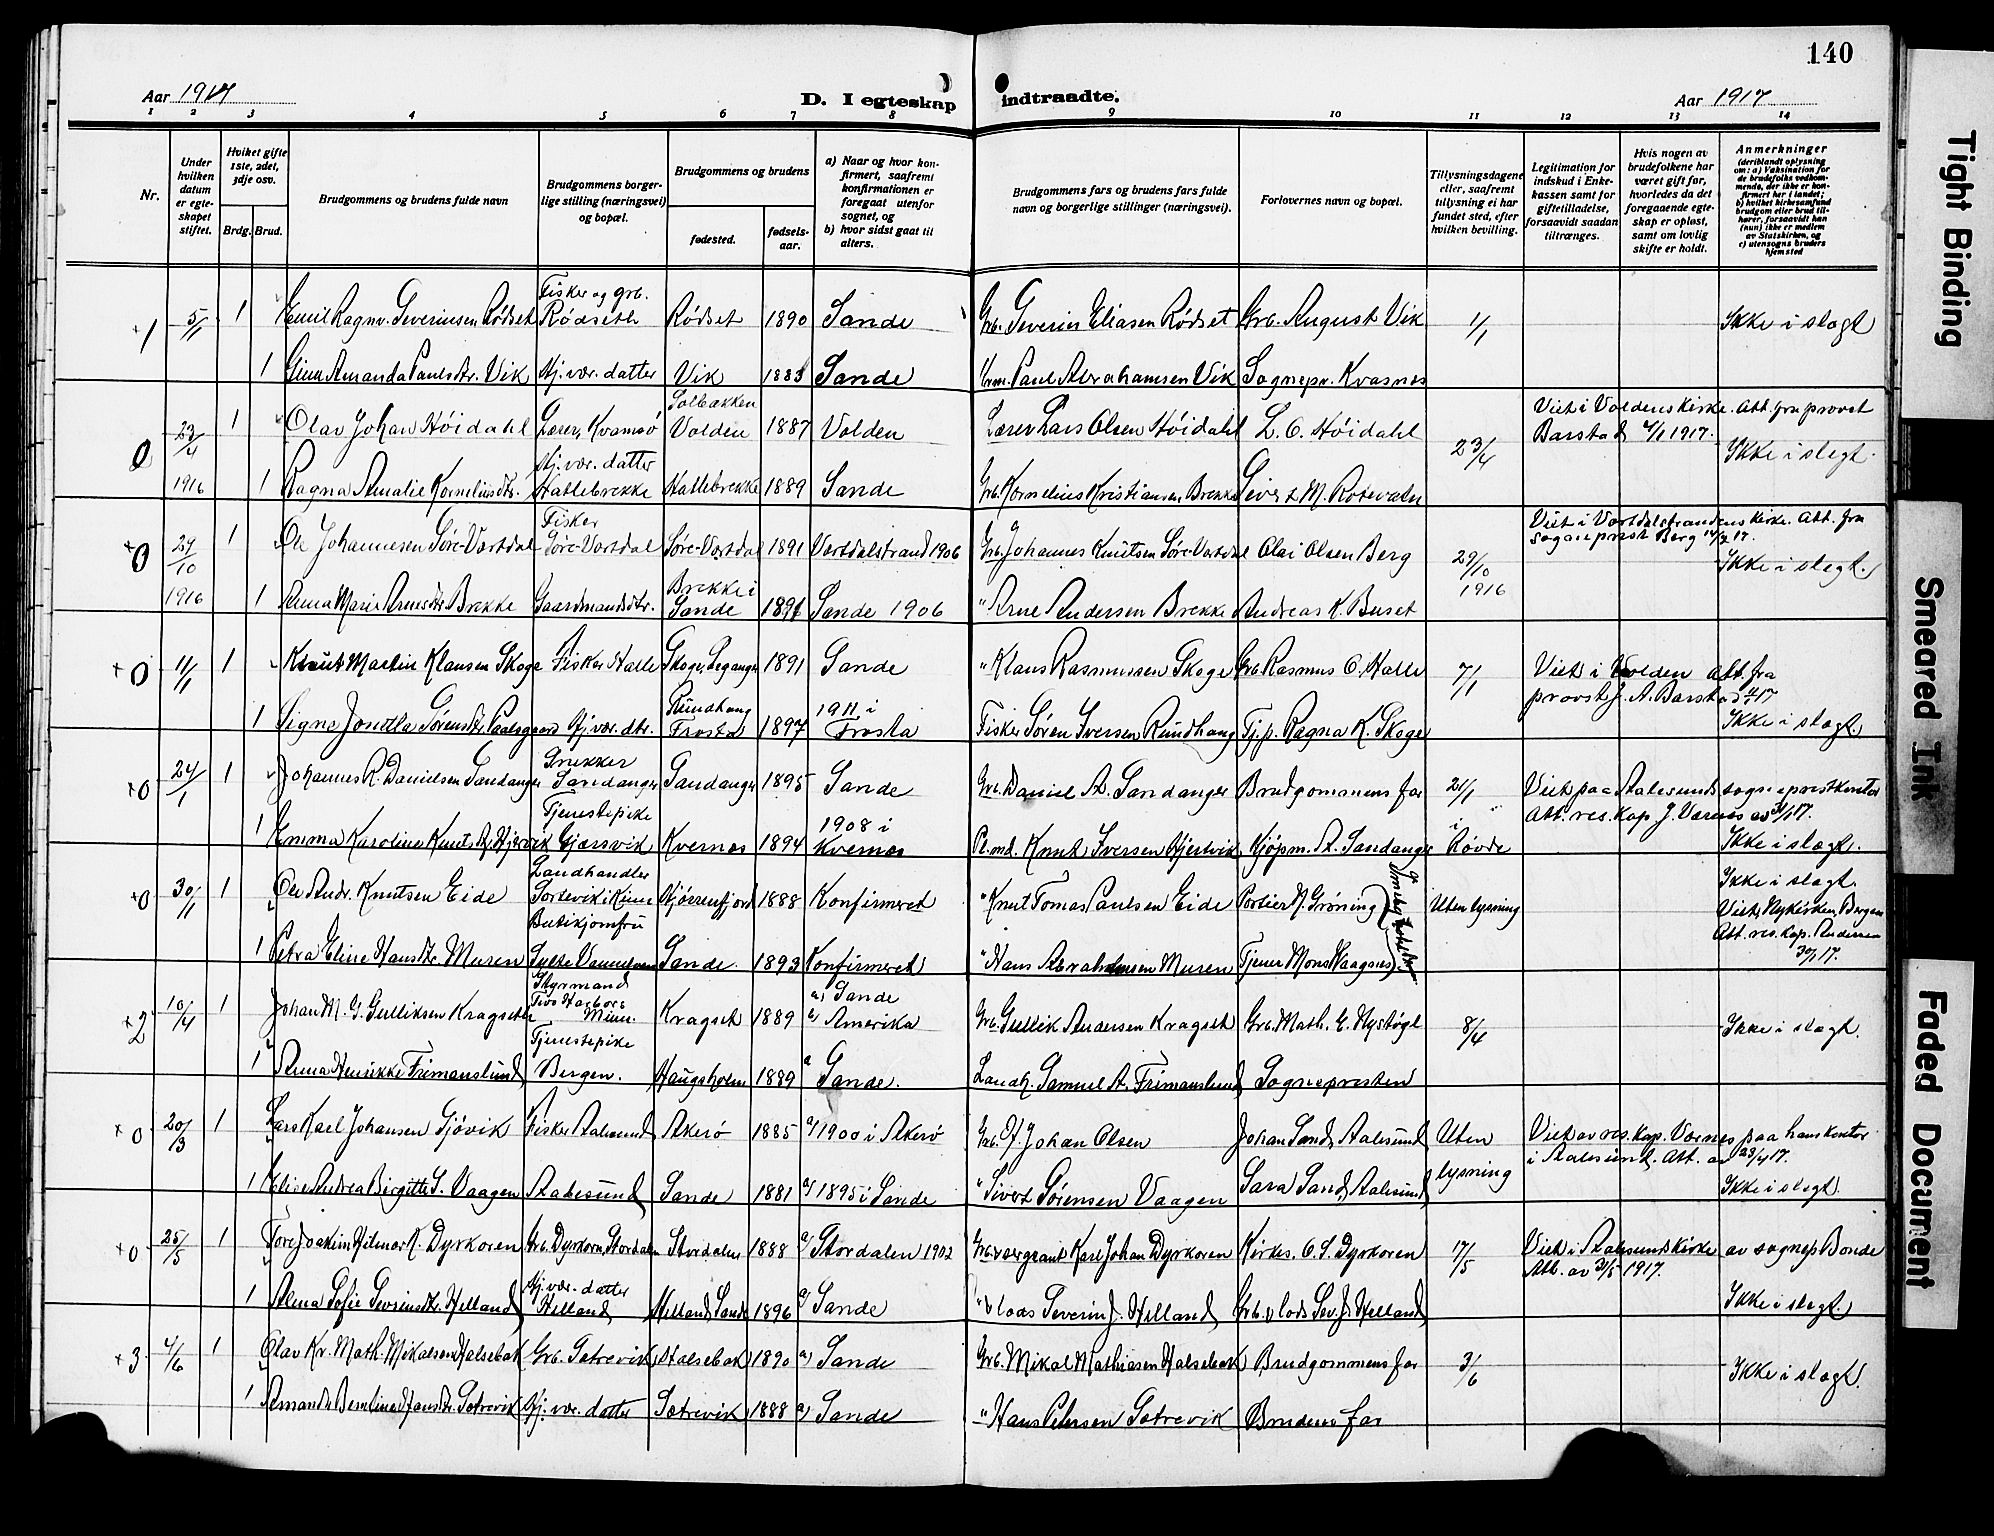 140
Aar 1917
D. I egteskap indtraadte.
Aar 1917
1 2 3 4 5 6 7 8 9 10 11 12 13 14
Nr.
Under hvilken datum er egteskapet stiftet.
Hvilket gifte 1ste, 2det, 3dje osv.
Brdg. Brud.
Brudgommens og brudens fulde navn
Brudgommens borgerlige stilling (næringsvei) og bopæl.
Brudgommens og brudens
fødested.
fødselsaar.
a) Naar og hvor konfirmert, saafremt konfirmationen er foregaat utenfor sognet, og
b) hvor sidst gaat til alters.
Brudgommens fars og brudens fars fulde navn og borgerlige stillinger (næringsvei).
Forlovernes navn og bopæl.
Tillysningsdagene eller, saafremt tillysning ei har fundet sted, efter hvilken bevilling.
Legitimation for indskud i Enkekassen samt for giftetilladelse, forsaavidt saadan tiltrænges.
Hvis nogen av brudefolkene har været gift før, hvorledes da det foregaaende egteskap er opløst, samt om lovlig skifte er holdt.
Anmerkninger (deriblandt oplysning om: a) Vaksination for de brudefolks vedkommende, der ikke er konfirmert her i landet; b) hvilket kirkesamfund brudgom eller brud tilhører, forsaavidt han (hun) ikke er medlem av Statskirken, og c) utensogns bruders hjemsted
+1 5/1 1 Emil Ragnv. Severinsen Rødset Fisker og grb. Rødseth Rødset 1890 Sande Grb. Severin Eliasen Rødset Grb. August Vik 1/1 Ikke i slegt
1 Gina Amanda Paulsdtr. Vik Hj. vær. datter Vik 1883 Sande Paul Abrahamsen Vik Sognepr. Kvasnes
0 23/4 1916 1 Olav Johan Høidahl Lærer, Kvamsø Solbakken Volden 1887 Volden Lærer Lars Olsen Høidahl L. O. Høidahl 23/4 Viet i Voldens kirke. Att. fra provst Barstad 1917. Ikke i slegt.
1 Ragna Amalie Korneliusdtr. Hj. vær. datter Hallebrekke Hallebrekke 1889 Sande Grb. Kornelius Kristiansen Brekke Sivert M. Rotevatn
+0 29/10 1916 1 Ole Johannesen Søre-Vartdal Fisker Søre-Vartdal Søre-Vartdal 1891 Vartdalstrand 1906 Grb. Johannes Knutsen Søre-Vartdal Olai Olsen Berg 29/10 1916 Viet i Vartdalstrandens kirke. Att. fra sogneprest Berg 17. Ikke i slegt.
1 Anna Marie Arnesdtr. Brekke Gaardmandsdtr. Brekke i Sande 1891 Sande 1906 " Arne Andersen Brekke Andreas K. Buset
+0 11/1 1 Knut Martin Klausen Skoge Fisker Halle Skoge, Seganger 1891 Sande " Klaus Rasmussen Skoge Grb. Rasmus O. Halle 7/1 Viet i Volden Att. fra provst J. A. Barstad 11/1 17 Ikke i slegt.
1 Signe Sørensdtr. Hj. vær. dtr. Rundhaug Frosta 1897 1911 i Frosta Fisker Søren Iversen Rundhaug Tj.p. Ragna K. Skoge
+0 24/1 1 Johannes R. Danielsen Sandanger Snekker Sandanger Sandanger 1895 Sande Grb. Daniel A. Sandanger Brudgommens far 21/1 i Røvde Viet paa Aalesunds sogneprestkontor Att. res. kap. J.Værnes av 31/1 17. Ikke i slegt.
1 Emma Karoline Knutsdtr. Tjenestepike Gjærsvik Kvernes 1894 1908 i Kvernes Knut Iversen Kjøpm. A. Sandanger
+0 30/1 1 Ole Andr. Knutsen Eide Landhandler Hjørrenfjord 1888 Konfirmeret " Knut Tomas Paulsen Eide Portier N. Grøning Uten lysning Ikke i slegt. Viet i Nykirken, Bergen Att. res. kap. Andersen 30/1 17.
1 Petra Eline Hansdtr. Musen Butikjomfru Sande 1893 Konfirmeret " Hans Abrahamsen Musen Tjener Mons Haagsnes
+2 10/4 1 Johan M. G. Gulliksen Kragseth Styrmand Two Harbors Minn. Kragset 1889 a) Sande b) Amerika Grb. Gullik Andersen Kragset Grb. Math. E. Nystøgl 8/4 Ikke i slegt.
1 Anna Henrikke Frimanslund Tjenestepike Bergen. Haugsholm 1889 a Sande. Landh. Samuel A. Frimanslund Sognepresten
+0 20/3 1 Lars Karl Johansen Gjøvik Fisker Aalesund Akerø 1885 a) 1900 i Akerø Grb. Johan Olsen Johan Sand, Aalesund Uten lysning Viet av res. kap. Værnes paa hans kontor i Aalesund. Att. av 23/4 17. Ikke i slegt.
1 Elise Andrea Birgitte S. Vaagen Aalesund Sande 1881 a) 1895 i Sande " Sivert Sørensen Vaagen Sara Sand, Aalesund
+0 25/5 1 Tore Joakim Hilmar K. Dyrkoren Grb. Dyrkorn, Stordalen Stordalen 1888 a) Stordalen 1902 Grb. Karl Johan Dyrkoren Kirkes. O. S. Dyrkoren 17/5 Viet i Aalesunds kirke av sognep. Bonde Att. av 31/5 1917. Ikke i slegt.
1 Alma Sofie Severinsdtr. Helland Hj. vær. datter Helland Helland, Sande 1896 a) Sande " Severin J. Helland Grb. Sev. J. Helland
+3 4/6 1 Olav Kr. Math. Mikalsen Halsebak Grb. Sætrevik Halsebak 1890 a) Sande Grb. Mikal Mathiasen Halsebak Brudgommens far 3/6 Ikke i slegt.
1 Amanda Bendine Hansdtr. Sætrevik Hj. vær. datter Sætrevik 1888 a) Sande " Hans Petersen Sætrevik Brudens far
Tight Binding
Smeared Ink
Faded Document